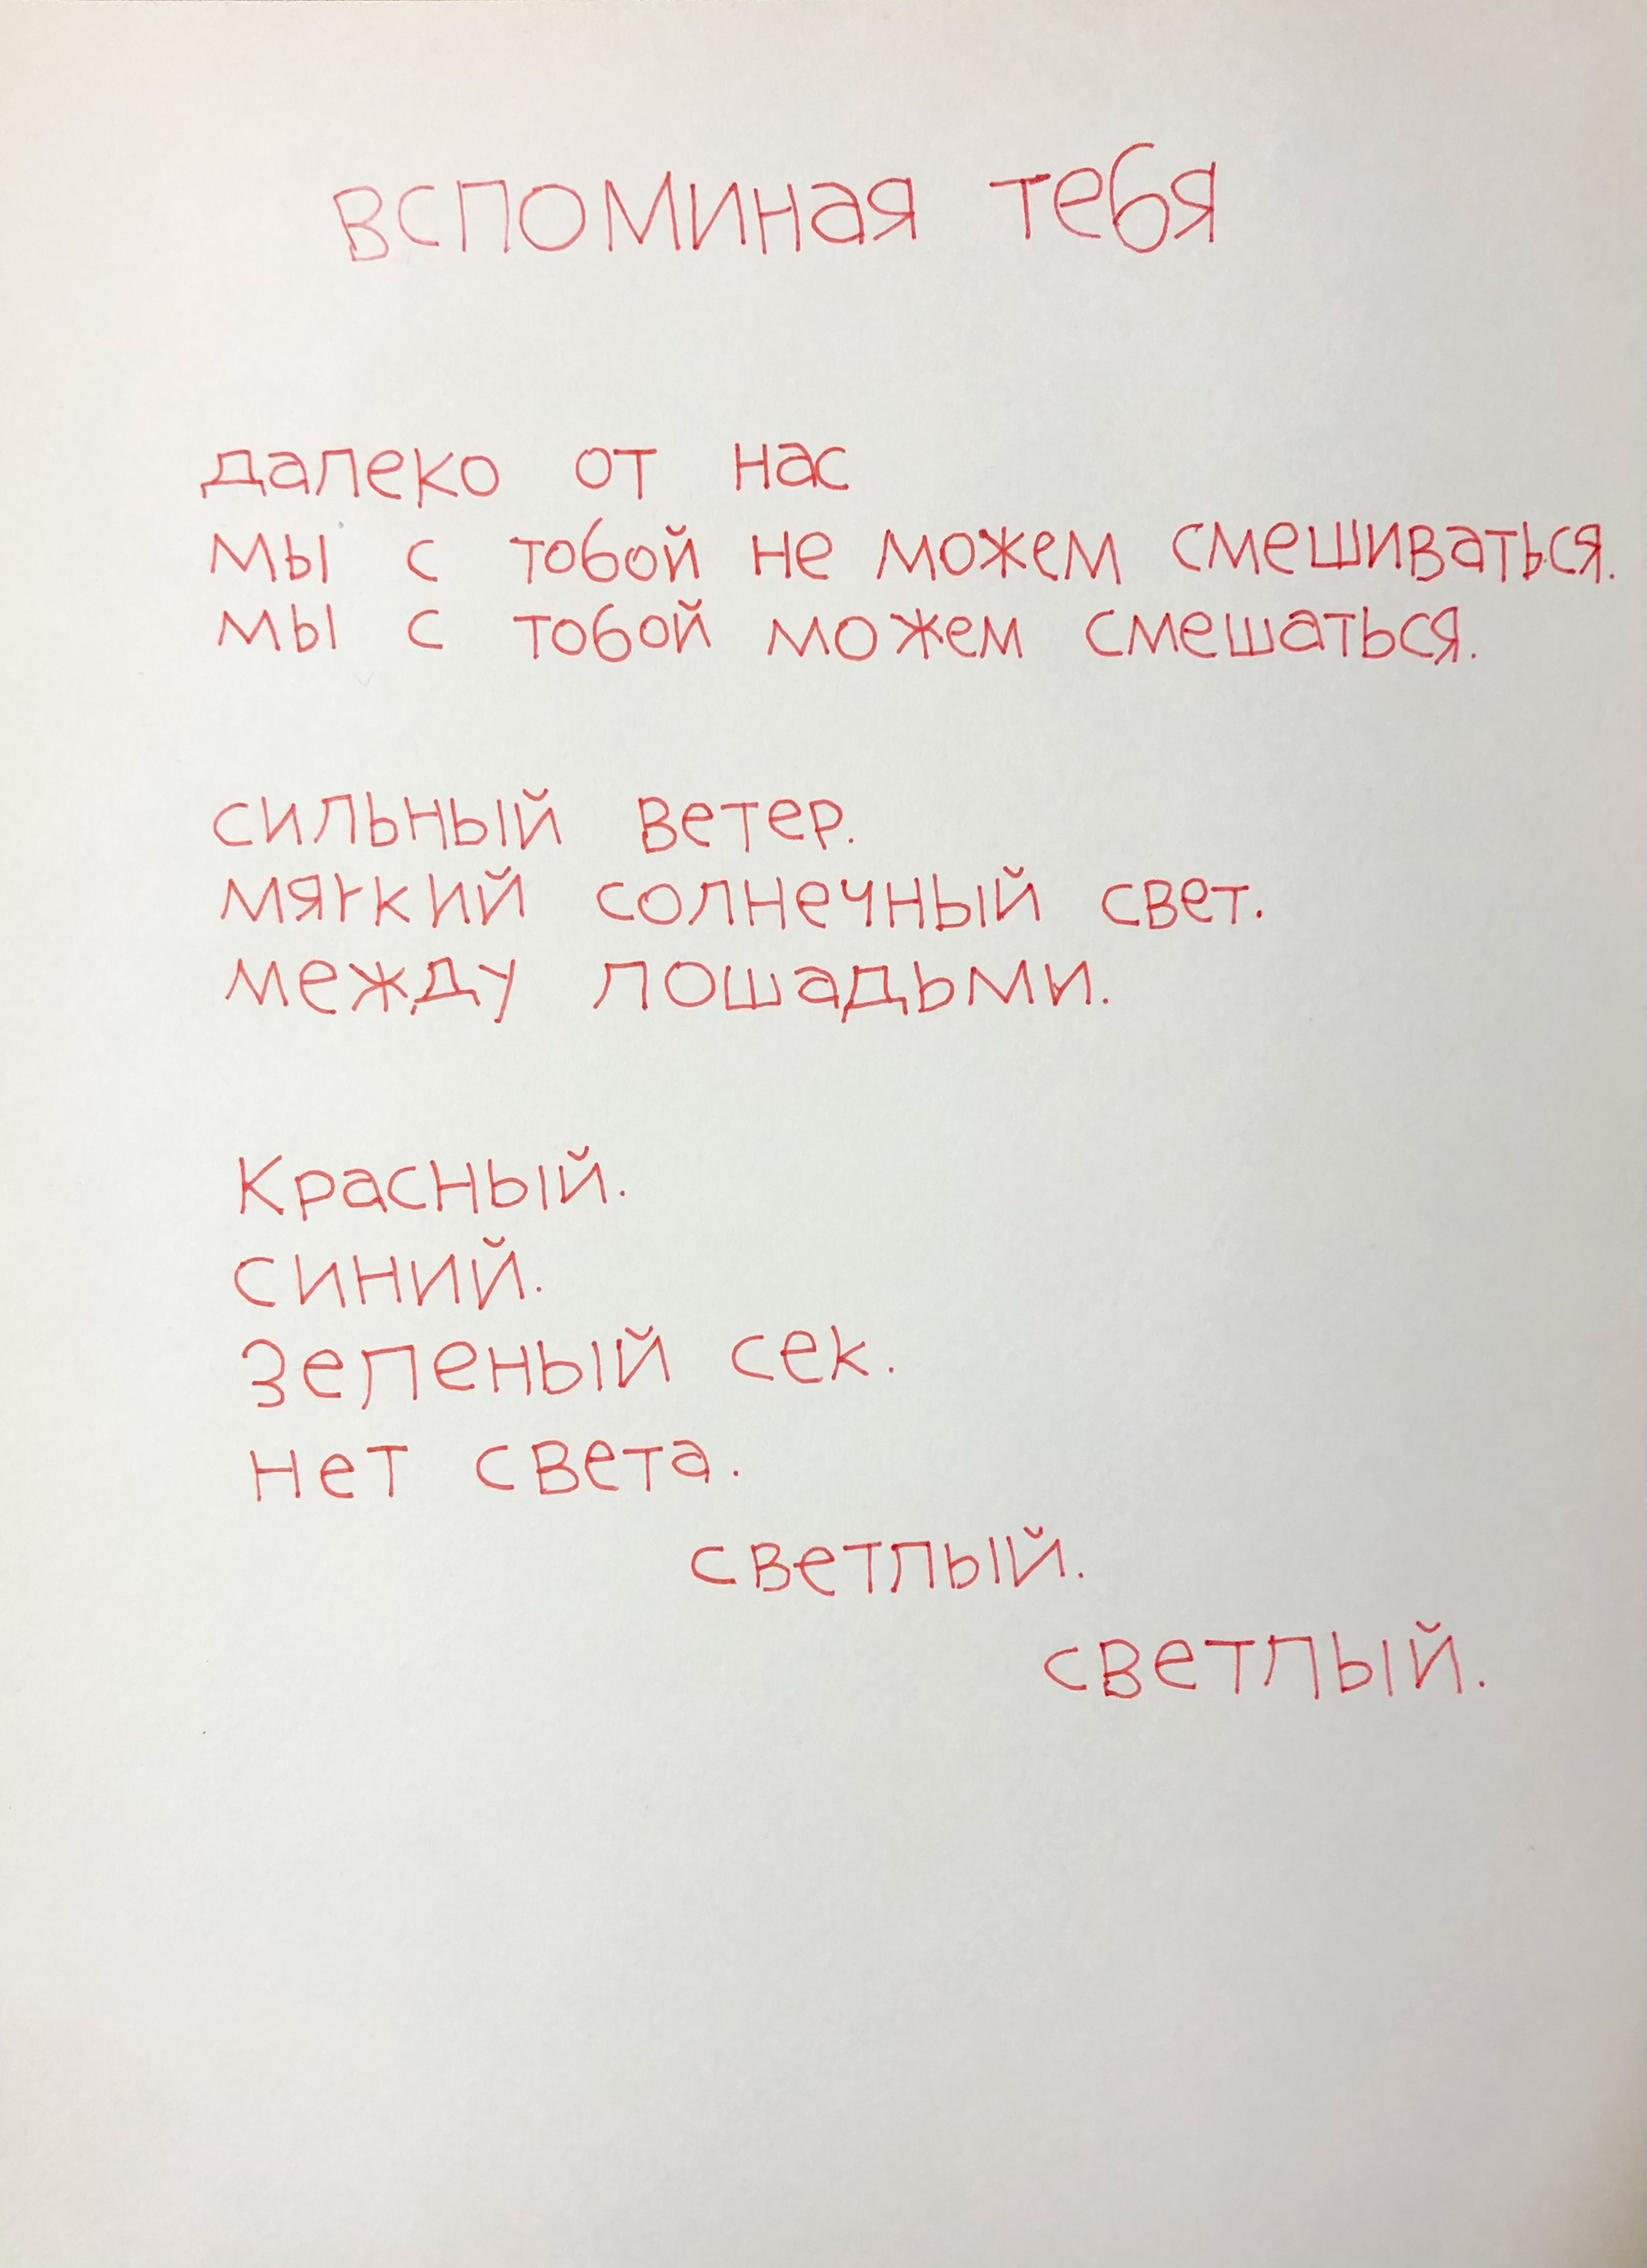 вспоминая тебя
далеко от нас
мы с тобой не можем смешиваться.
мы с тобой можем смешаться.
сильный ветер.
мягкий солнечный свет.
между лошадьми.
Красный.
синий.
Зеленый сек.
нет света.
светлый.
светлый.